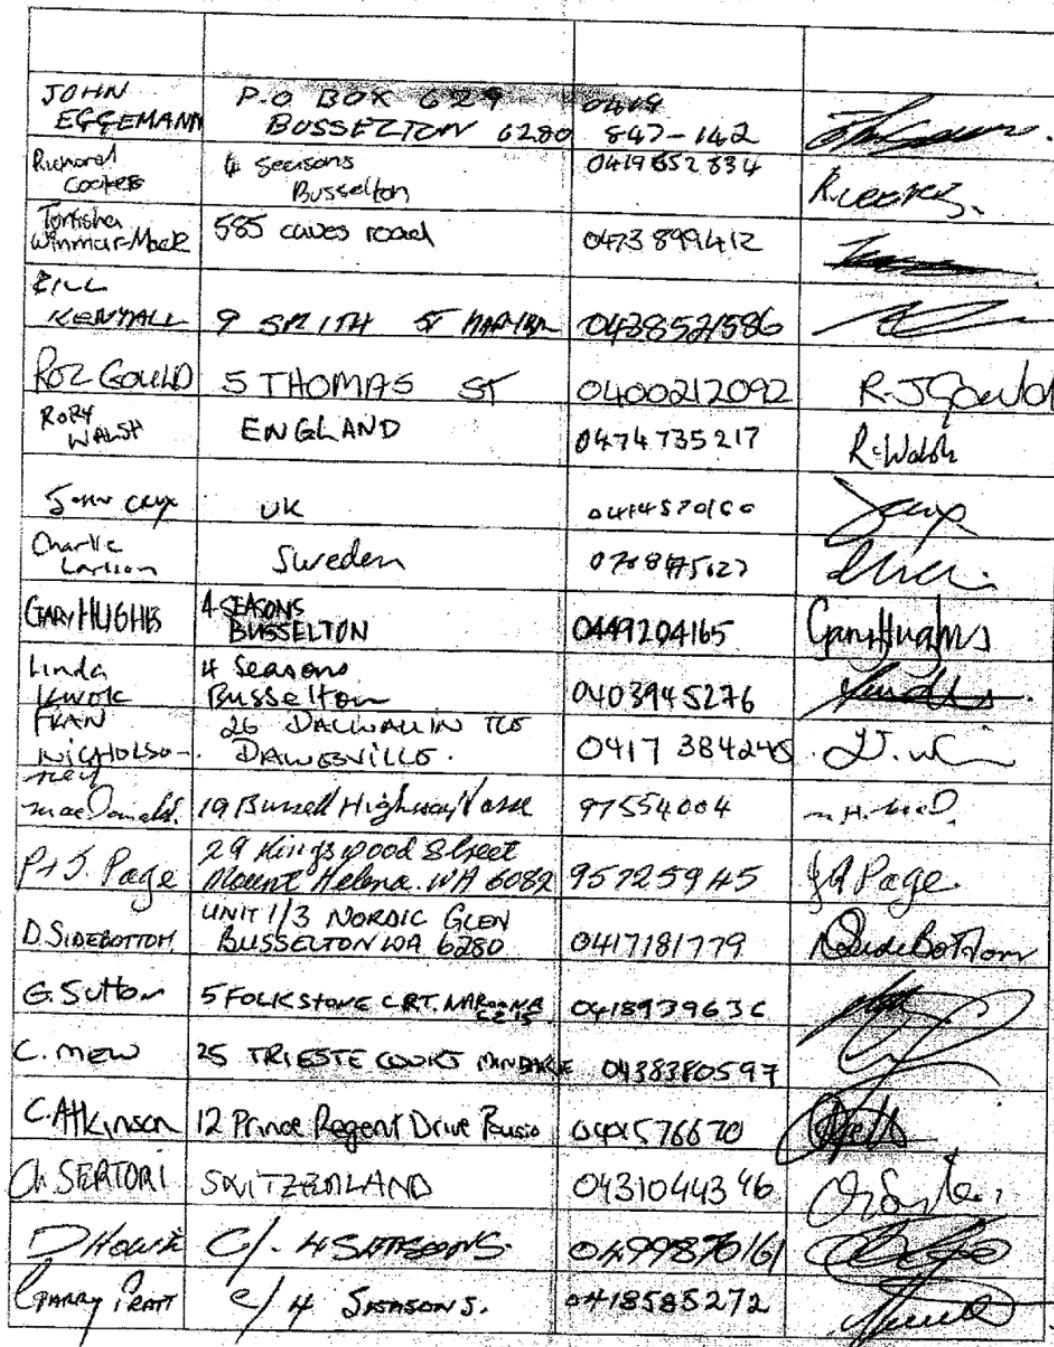 JOHN EGGEMANN P.O BOX 629 BUSSELTON 6280 0419 847-142
Richard Cookes 4 Seasons Busselton 0419652834 R.Cookes.
Winmar-Mack 585 caves road 0473899412
KENTALL 9 SMITH ST 0438521586
ROZ GOULD 5 THOMAS ST 0400212092 R-J Gould
RORY WALSH ENGLAND 0474735217 R.Walsh
UK
Charlie Larsson Sweden
GARY HUGHES 4 SEASONS BUSSELTON 0449204165 Gary Hughes
Linda Kwok 4 Seasons Busselton 0403945276
FRAN NICHOLSO- 26 DALWALLIN TCE DAWESVILLE. 0417 384245
MacDonald. 19 Bussell Highway Vasse 97554004
P+J. Page 29 Kingswood Street Mount Helena. WA 6082 95725945 J A Page.
D.SIDEBOTTOM UNIT 1/3 NORDIC GLEN BUSSELTON WA 6280 0417181779 D SideBottom
G.Sutton 5 FOLKSTONE CRT. 0418939636
C. MEW 25 TRIESTE COURT MINDARIE 0438380597
C.Atkinson 12 Prince Regent Drive
Ch. SERTORI SWITZERLAND 0431044346
D Howie C/- 4 SEASONS. 0499870161
GARRY PRATT c/ 4 SEASONS. 0418585272